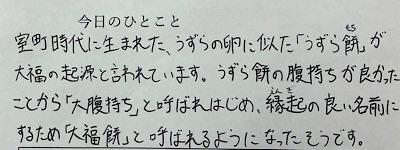 今日のひとこと
室町時代に生まれた、うずらの卵に似た「うずら餅」が
大福の起源と言われています。うずら餅の腹持ちが良かった
ことから「大腹持ち」と呼ばれはじめ、縁起の良い名前に
するため「大福餅」と呼ばれるようになったそうです。